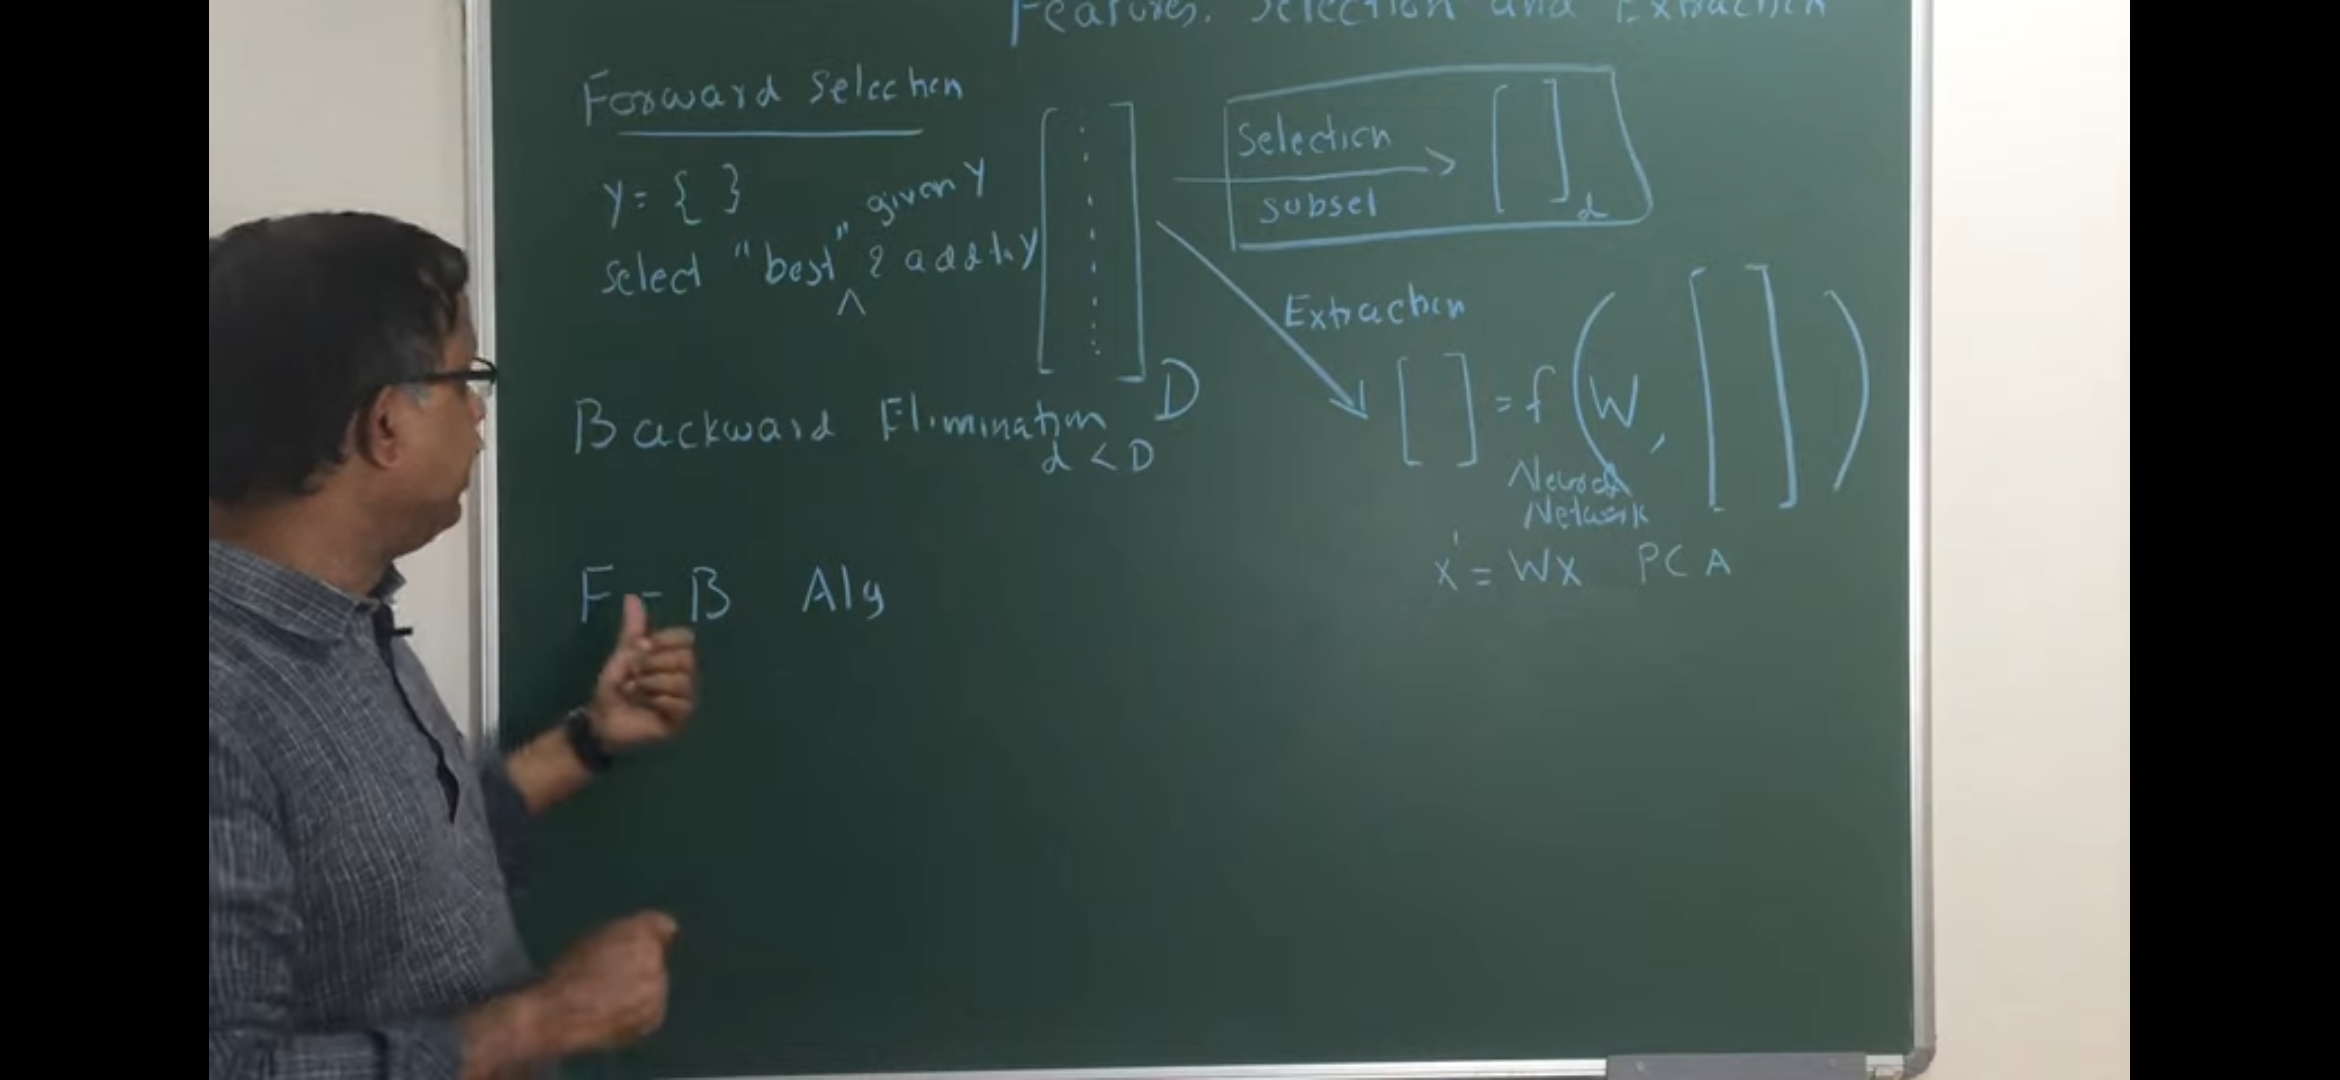 Features. Selection and Extraction
Forward Selection
Y = { }
given Y
select "best" & add to Y
^
Backward Elimination
F - B Alg
D
d < D
Selection
subset
[ ]d
Extraction
[ ] = f ( W , [ ] )
Neural
Network
x' = Wx PCA